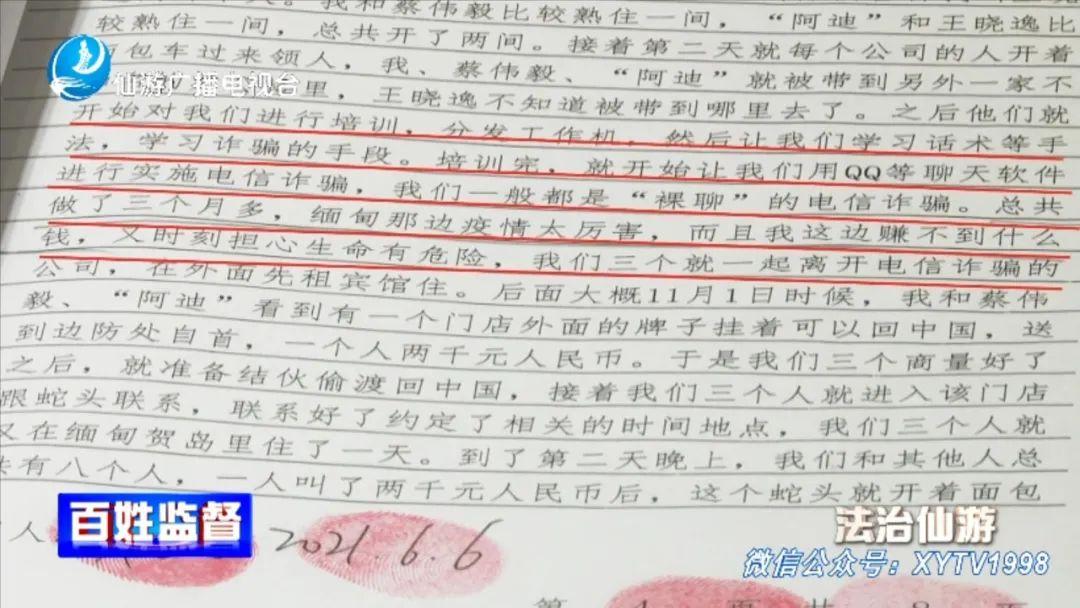 我和蔡伟毅比较熟住一间,“阿迪”和王晓逸比
较熟住一间,总共开了两间。接着第二天就每个公司的人开着
面包车过来领人,我、蔡伟毅、“阿迪”就被带到另外一家不
里,王晓逸不知道被带到哪里去了。之后他们就
开始对我们进行培训,分发工作机,然后让我们学习话术等手
法,学习诈骗的手段。培训完,就开始让我们用QQ等聊天软件
进行实施电信诈骗,我们一般都是“裸聊”的电信诈骗。总共
做了三个月多,缅甸那边疫情太厉害,而且我这边赚不到什么
钱,又时刻担心生命有危险,我们三个就一起离开电信诈骗的
公司,在外面先租宾馆住。后面大概11月1日时候,我和蔡伟
毅、“阿迪”看到有一个门店外面的牌子挂着可以回中国,送
到边防处自首,一个人两千元人民币。于是我们三个商量好了
之后,就准备结伙偷渡回中国,接着我们三个人就进入该门店
跟蛇头联系,联系好了约定了相关的时间地点,我们三个人就
又在缅甸贺岛里住了一天。到了第二天晚上,我们和其他人总
共有八个人,一人叫了两千元人民币后,这个蛇头就开着面包
人
2021.6.6
第 4 页 共 8
仙游广播电视台
百姓监督
法治仙游
微信公众号:XYTV1998